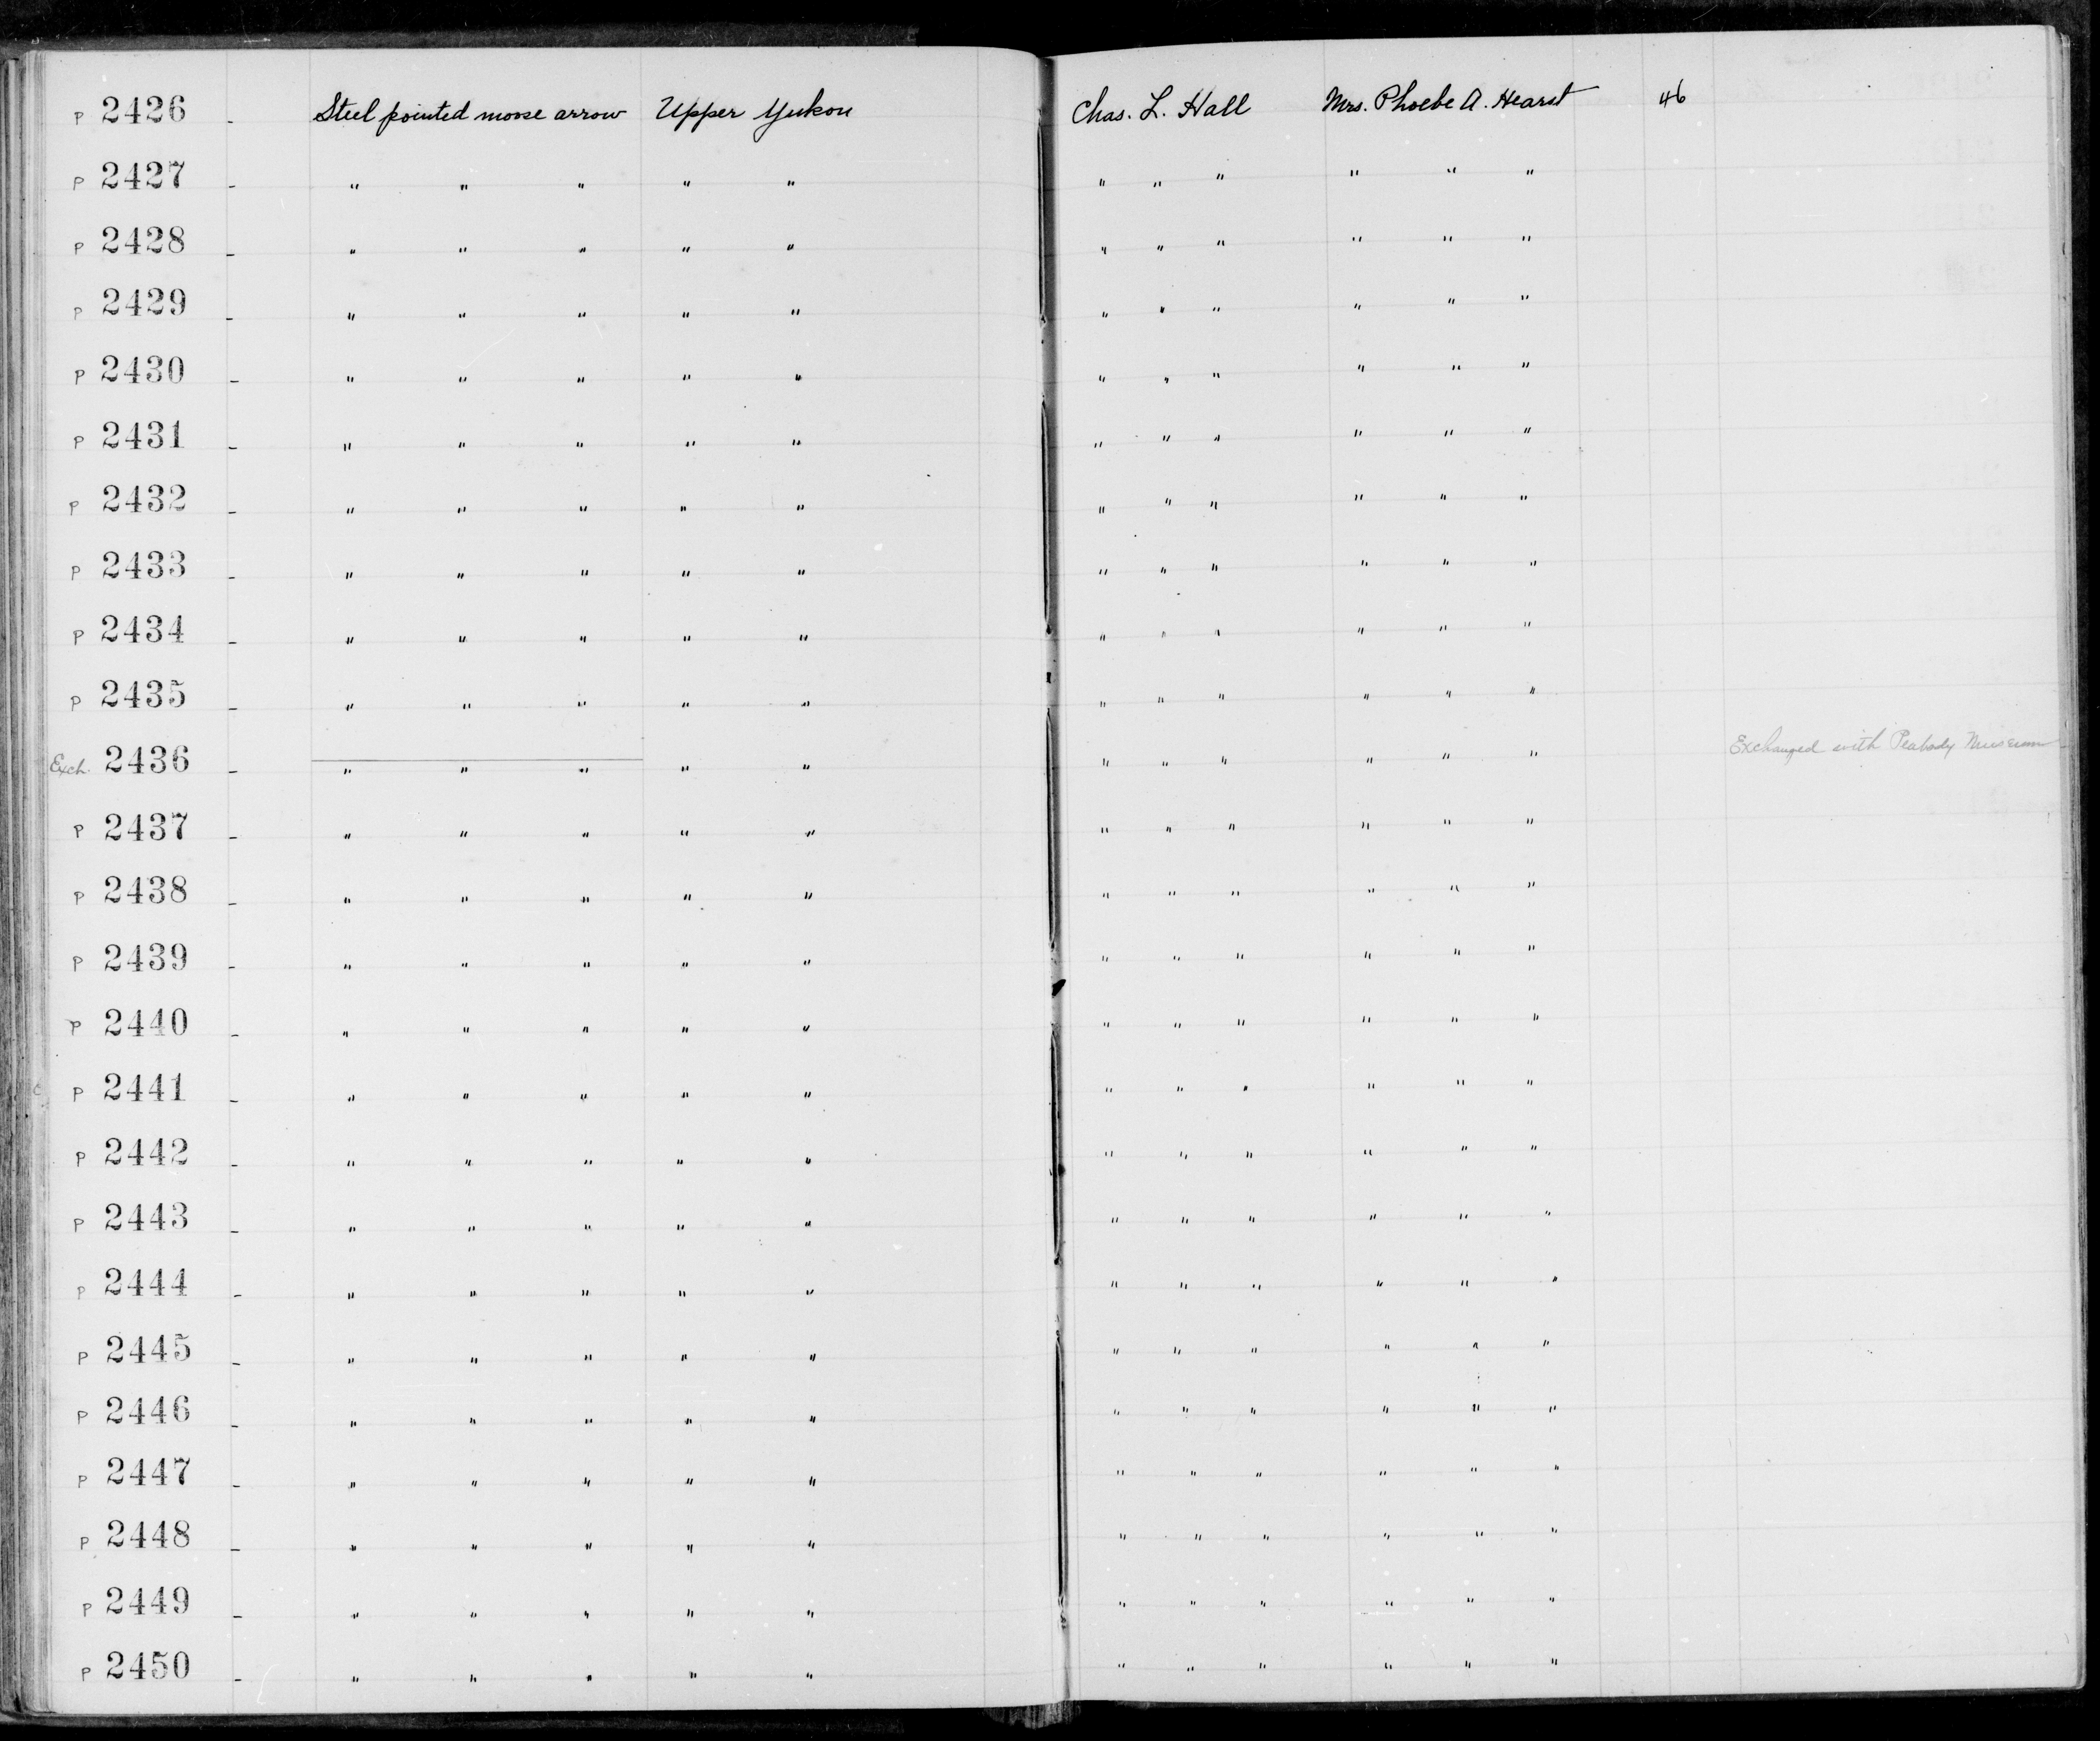 P 2426 - Steel pointed moose arrow Upper Yukon Chas. L. Hall Mrs. Phoebe A. Hearst 46
P 2427 - " " " " " " " " " " "
P 2428 - " " " " " " " " " " "
P 2429 - " " " " " " " " " " "
P 2430 - " " " " " " " " " " "
P 2431 - " " " " " " " " " " "
P 2432 - " " " " " " " " " " "
P 2433 - " " " " " " " " " " "
P 2434 - " " " " " " " " " " "
P 2435 - " " " " " " " " " " "
Exch. 2436 - " " " " " " " " " " " Exchanged with Peabody Museum
P 2437 - " " " " " " " " " " "
P 2438 - " " " " " " " " " " "
P 2439 - " " " " " " " " " " "
P 2440 - " " " " " " " " " " "
P 2441 - " " " " " " " " " " "
P 2442 - " " " " " " " " " " "
P 2443 - " " " " " " " " " " "
P 2444 - " " " " " " " " " " "
P 2445 - " " " " " " " " " " "
P 2446 - " " " " " " " " " " "
P 2447 - " " " " " " " " " " "
P 2448 - " " " " " " " " " " "
P 2449 - " " " " " " " " " " "
P 2450 - " " " " " " " " " " "